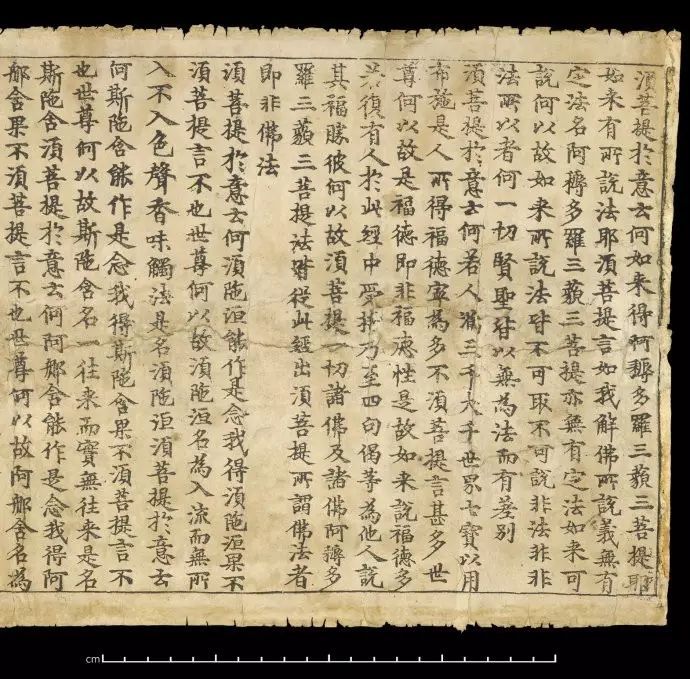 湏菩提於意云何如来得阿耨多羅三藐三菩提耶
如来有所說法耶湏菩提言如我解佛所說義無有
定法名阿耨多羅三藐三菩提亦無有定法如来可
說何以故如来所說法皆不可取不可說非法非非
法所以者何一切賢聖皆以無為法而有差别
湏菩提於意云何若人滿三千大千世界七寶以用
布施是人所得福德寧為多不湏菩提言甚多世
尊何以故是福德即非福德性是故如来說福德多
若復有人於此經中受持乃至四句偈等為他人說
其福勝彼何以故湏菩提一切諸佛及諸佛阿耨多
羅三藐三菩提法皆從此經出湏菩提所謂佛法者
即非佛法
湏菩提於意云何湏陁洹能作是念我得湏陁洹果不
湏菩提言不也世尊何以故湏陁洹名為入流而無所
入不入色聲香味觸法是名湏陁洹湏菩提於意云
何斯陁含能作是念我得斯陁含果不湏菩提言不
也世尊何以故斯陁含名一往来而實無往来是名
斯陁含湏菩提於意云何阿那含能作是念我得阿
那含果不湏菩提言不也世尊何以故阿那含名為
cm